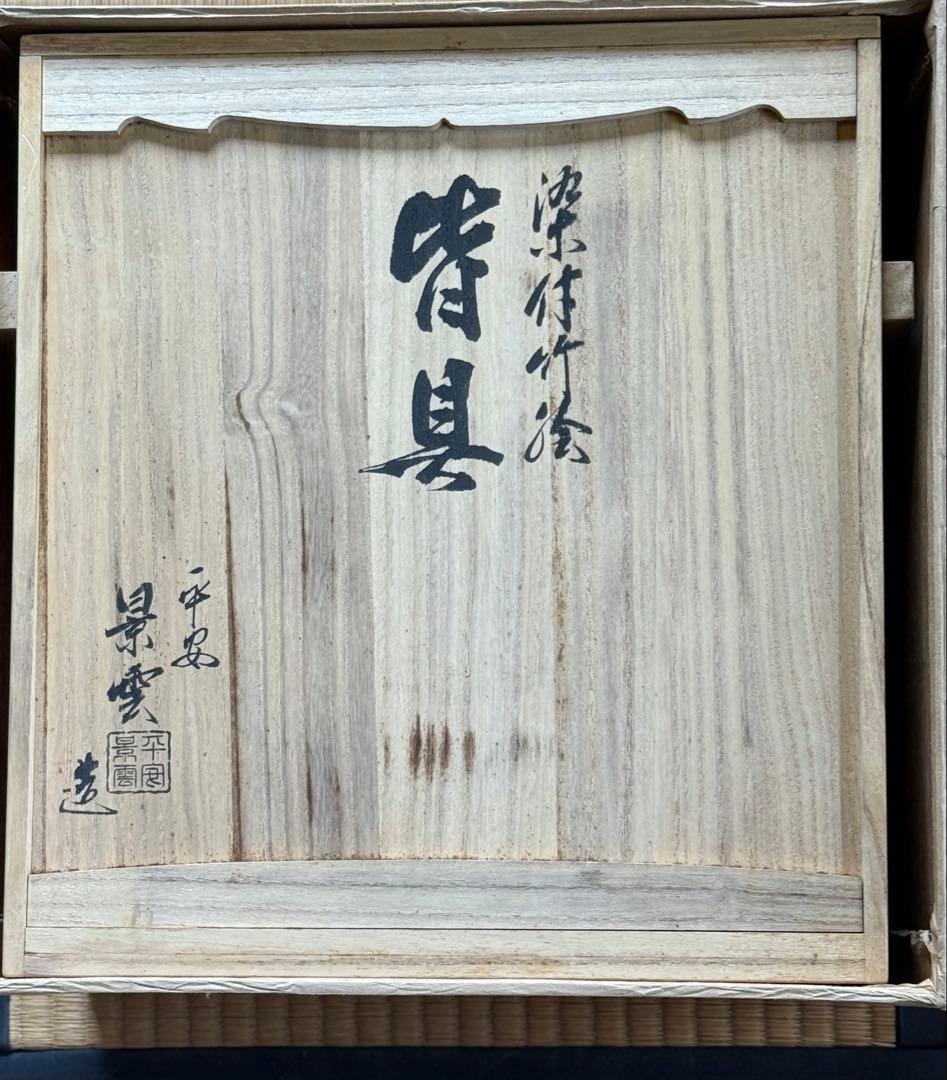 染付竹絵
皆具
平安
景雲
造
平安
景雲